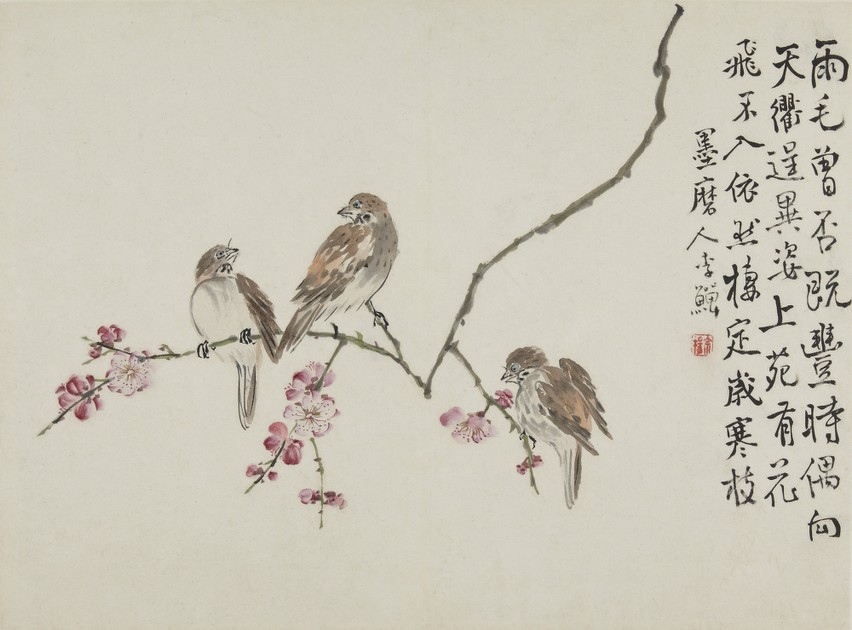 雨毛曾否既豐時偶向
天衢逞異姿上苑有花
飛不入依然棲定歲寒枝
墨磨人李鱓